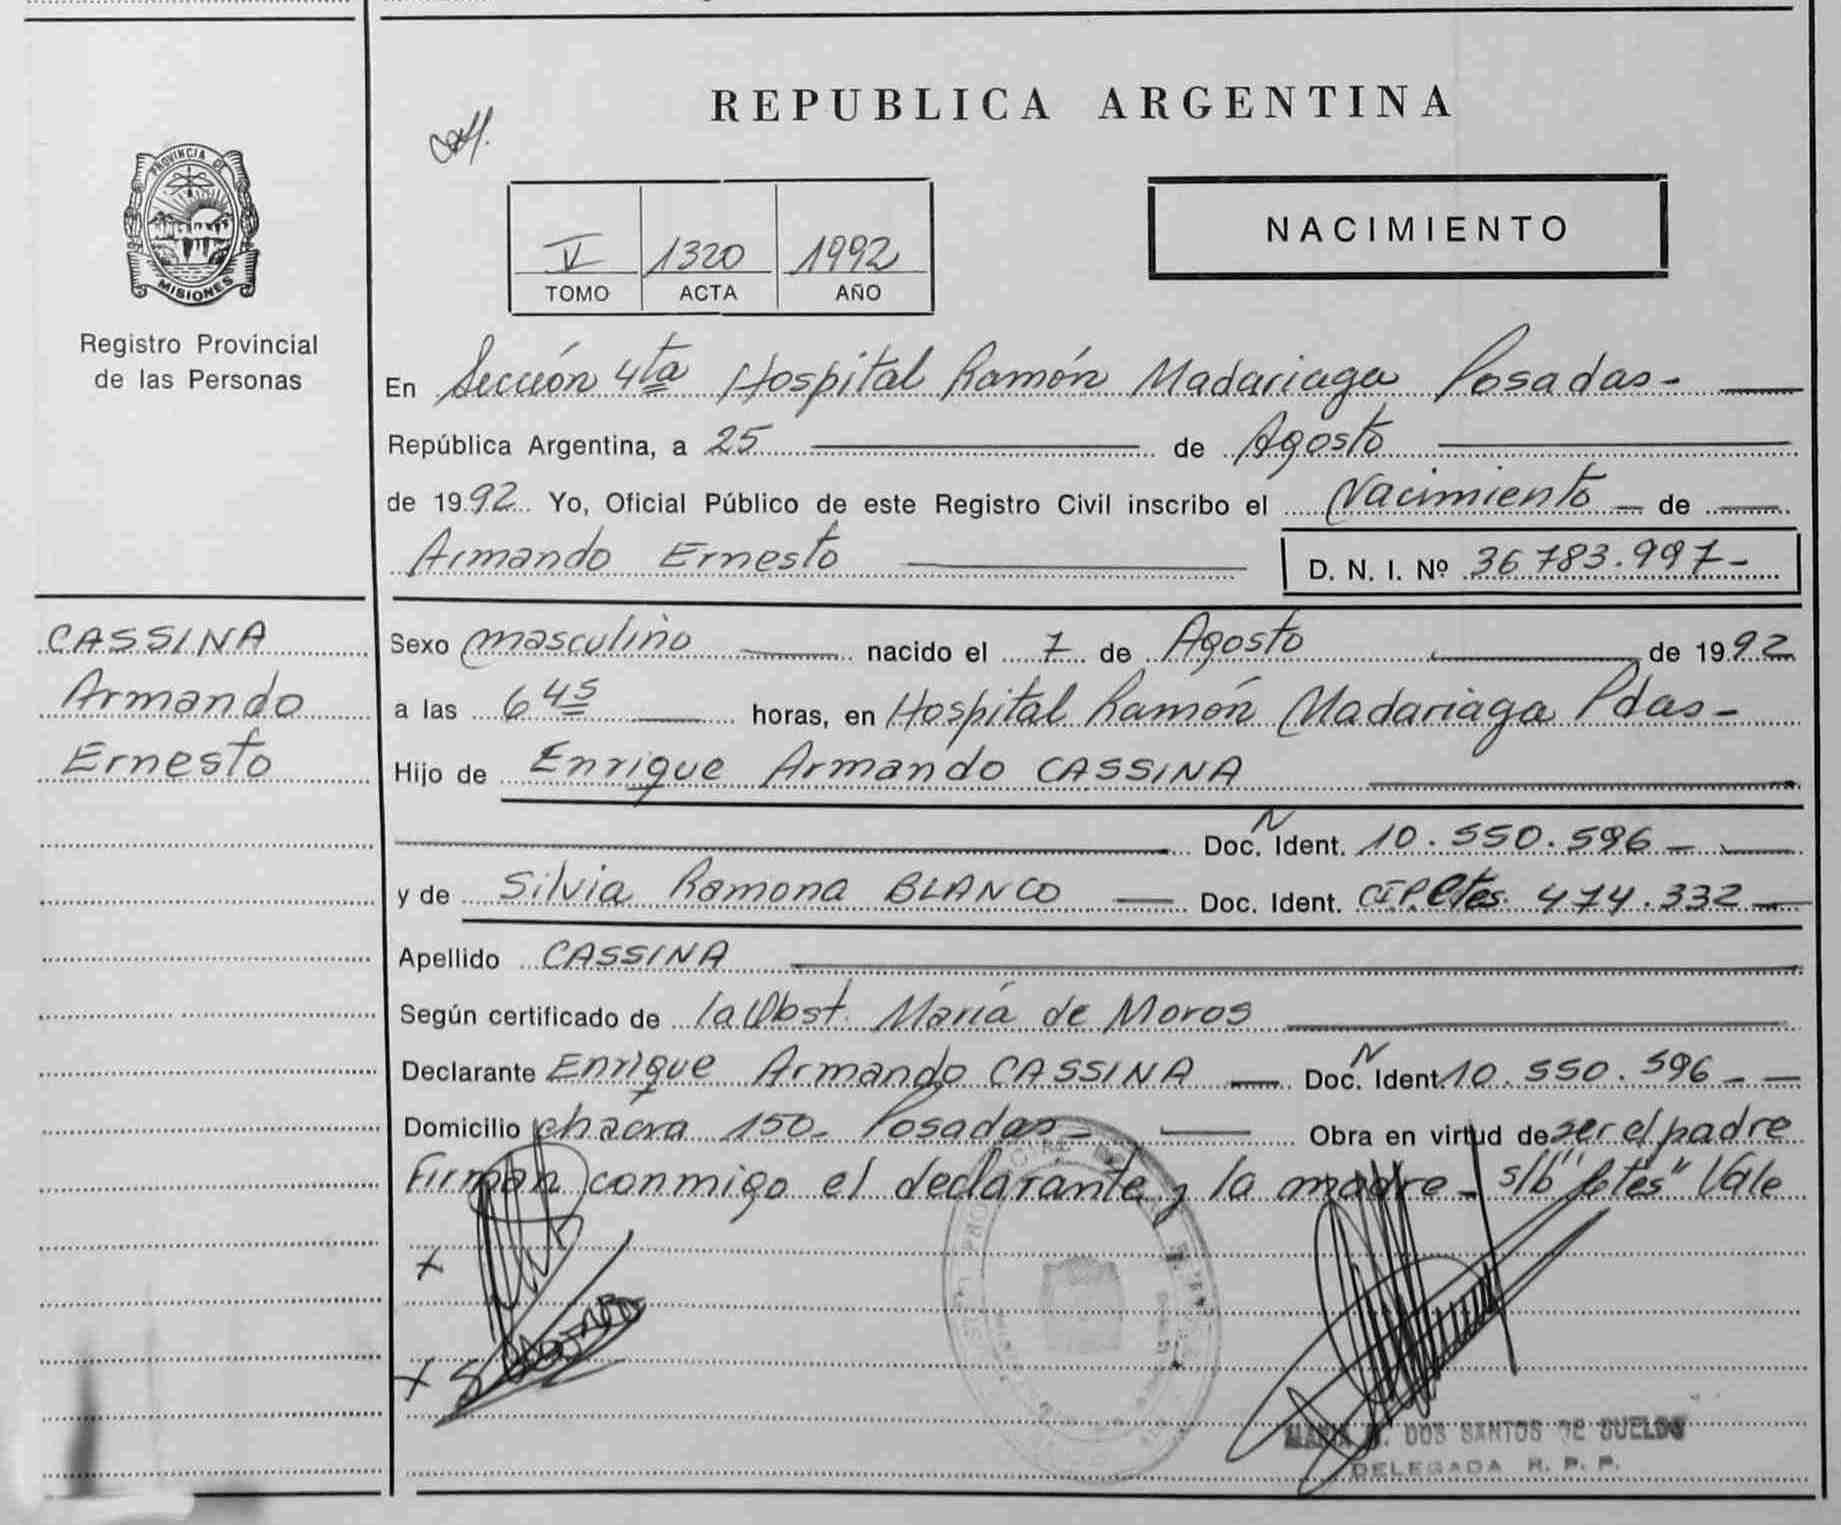 REPUBLICA ARGENTINA
PROVINCIA DE
MISIONES
Registro Provincial
de las Personas
NACIMIENTO
V 1320 1992
TOMO ACTA AÑO
En Sección 4ta Hospital Ramón Madariaga Posadas-
República Argentina, a 25 de Agosto
de 1992 Yo, Oficial Público de este Registro Civil inscribo el Nacimiento - de
Armando Ernesto D. N. I. Nº 36.783.997-
CASSINA
Armando
Ernesto
Sexo masculino nacido el 7 de Agosto de 1992
a las 6 45 horas, en Hospital Ramón Madariaga Pdas-
Hijo de Enrique Armando CASSINA
N
Doc. Ident. 10.550.596-
y de Silvia Ramona BLANCO Doc. Ident. CIPCtes. 474.332-
Apellido CASSINA
Según certificado de la Obst. María de Moros
Declarante Enrique Armando CASSINA N Doc. Ident. 10.550.596--
Domicilio chacra 150- Posadas- Obra en virtud de ser el padre
Firman conmigo el declarante y la madre- s/b "Ctes" Vale
x
x
DOS SANTOS DE SUELDO
DELEGADA R. P. P.